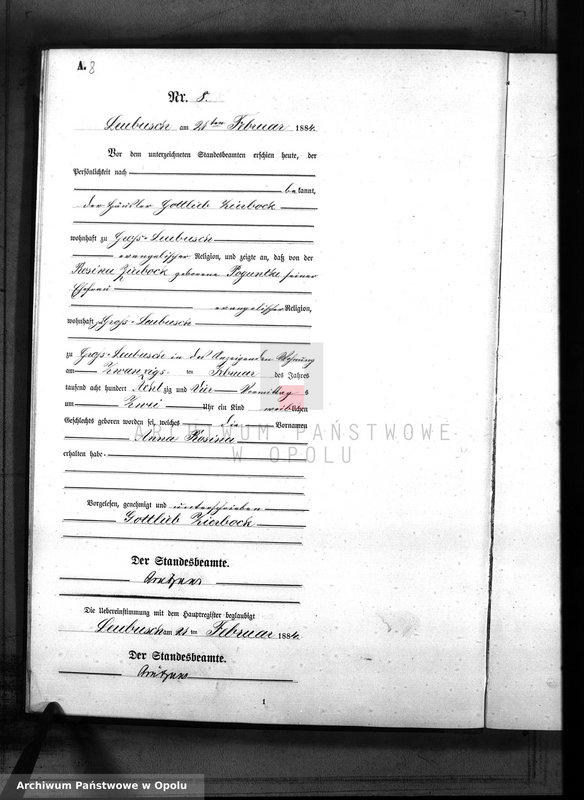 A. 8
Nr. 8.
Leubusch am 21ten Februar 1884.
Vor dem unterzeichneten Standesbeamten erschien heute, der
Persönlichkeit nach
bekannt,
der Häusler Gottlieb Zierbock
wohnhaft zu Groß-Leubusch
evangelischer Religion, und zeigte an, daß von der
Rosina Zierbock geborene Poguntke seiner
Ehefrau
evangelischer Religion,
wohnhaft zu Groß-Leubusch
zu Groß-Leubusch in des Anzeigenden Wohnung
am Zwanzigsten Februar des Jahres
tausend acht hundert Achtzig und Vier Vormittags
um Zwei Uhr ein Kind weiblichen
Geschlechts geboren worden sei, welches die Vornamen
Anna Rosina
erhalten habe.
Vorgelesen, genehmigt und unterschrieben
Gottlieb Zierbock
Der Standesbeamte.
Die Uebereinstimmung mit dem Hauptregister beglaubigt
Leubusch am 21ten Februar 1884.
Der Standesbeamte.
1
ARCHIWUM PAŃSTWOWE
W OPOLU
Archiwum Państwowe w Opolu